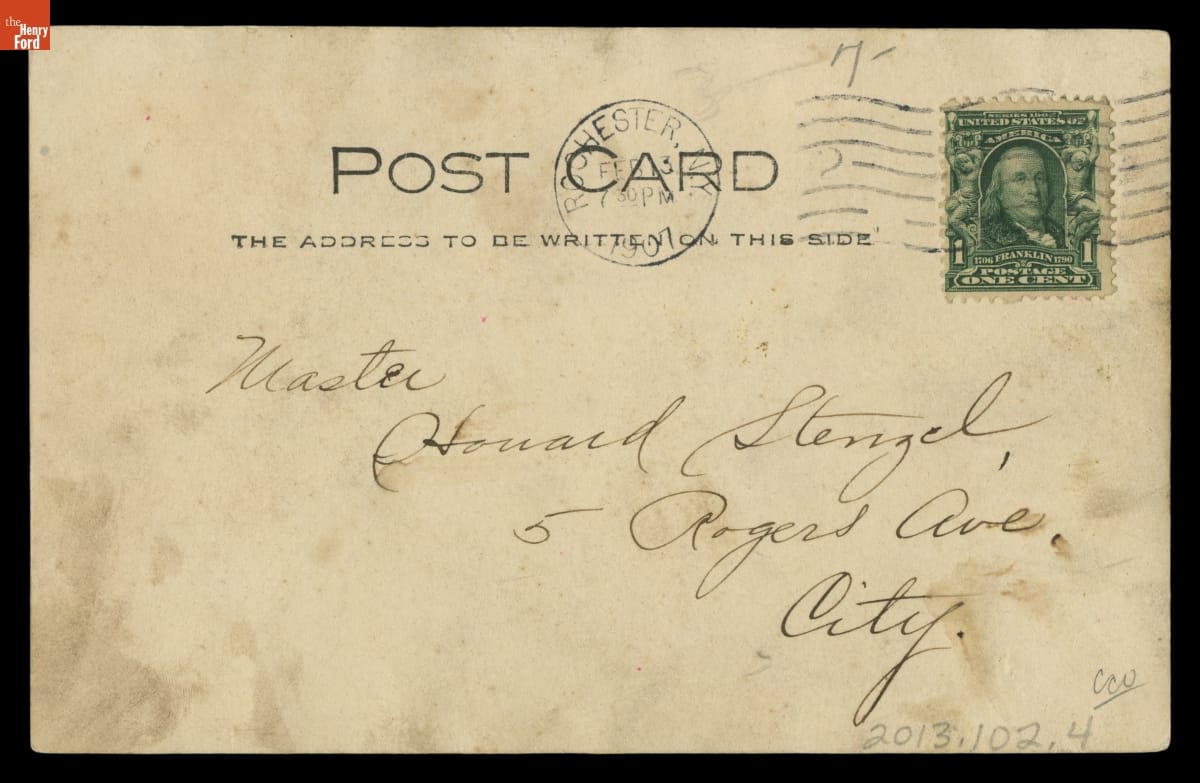 the
Henry
Ford
7-
POST CARD
THE ADDRESS TO BE WRITTEN ON THIS SIDE
ROCHESTER, N.Y.
FEB 3
7 30 PM
1907
SERIES 1902
UNITED STATES OF
AMERICA
1 1706 FRANKLIN 1790 1
POSTAGE
ONE CENT
Master
Howard Stengel,
5 Rogers Ave.
City.
2013.102.4